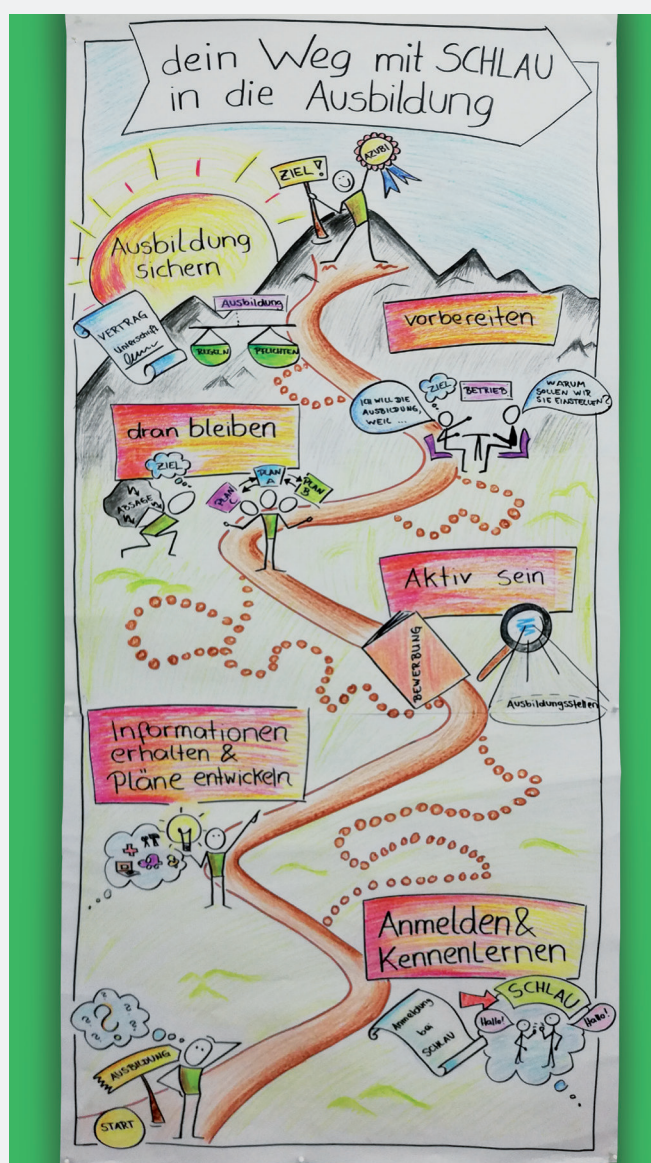 dein Weg mit SCHLAU
in die Ausbildung
ZIEL!
AZUBI
Ausbildung
sichern
VERTRAG
Unterschrift
Ausbildung
REGELN
PFLICHTEN
vorbereiten
ICH WILL DIE
AUSBILDUNG,
WEIL ...
ZIEL
BETRIEB
WARUM
SOLLEN WIR
SIE EINSTELLEN?
dran bleiben
ZIEL
ABSAGE
PLAN
C
PLAN
A
PLAN
B
Aktiv sein
BEWERBUNG
Ausbildungsstellen
Informationen
erhalten &
Pläne entwickeln
Anmelden &
Kennenlernen
Anmeldung
bei
SCHLAU
SCHLAU
Hallo!
Hallo!
?
?
?
?
?
AUSBILDUNG
START